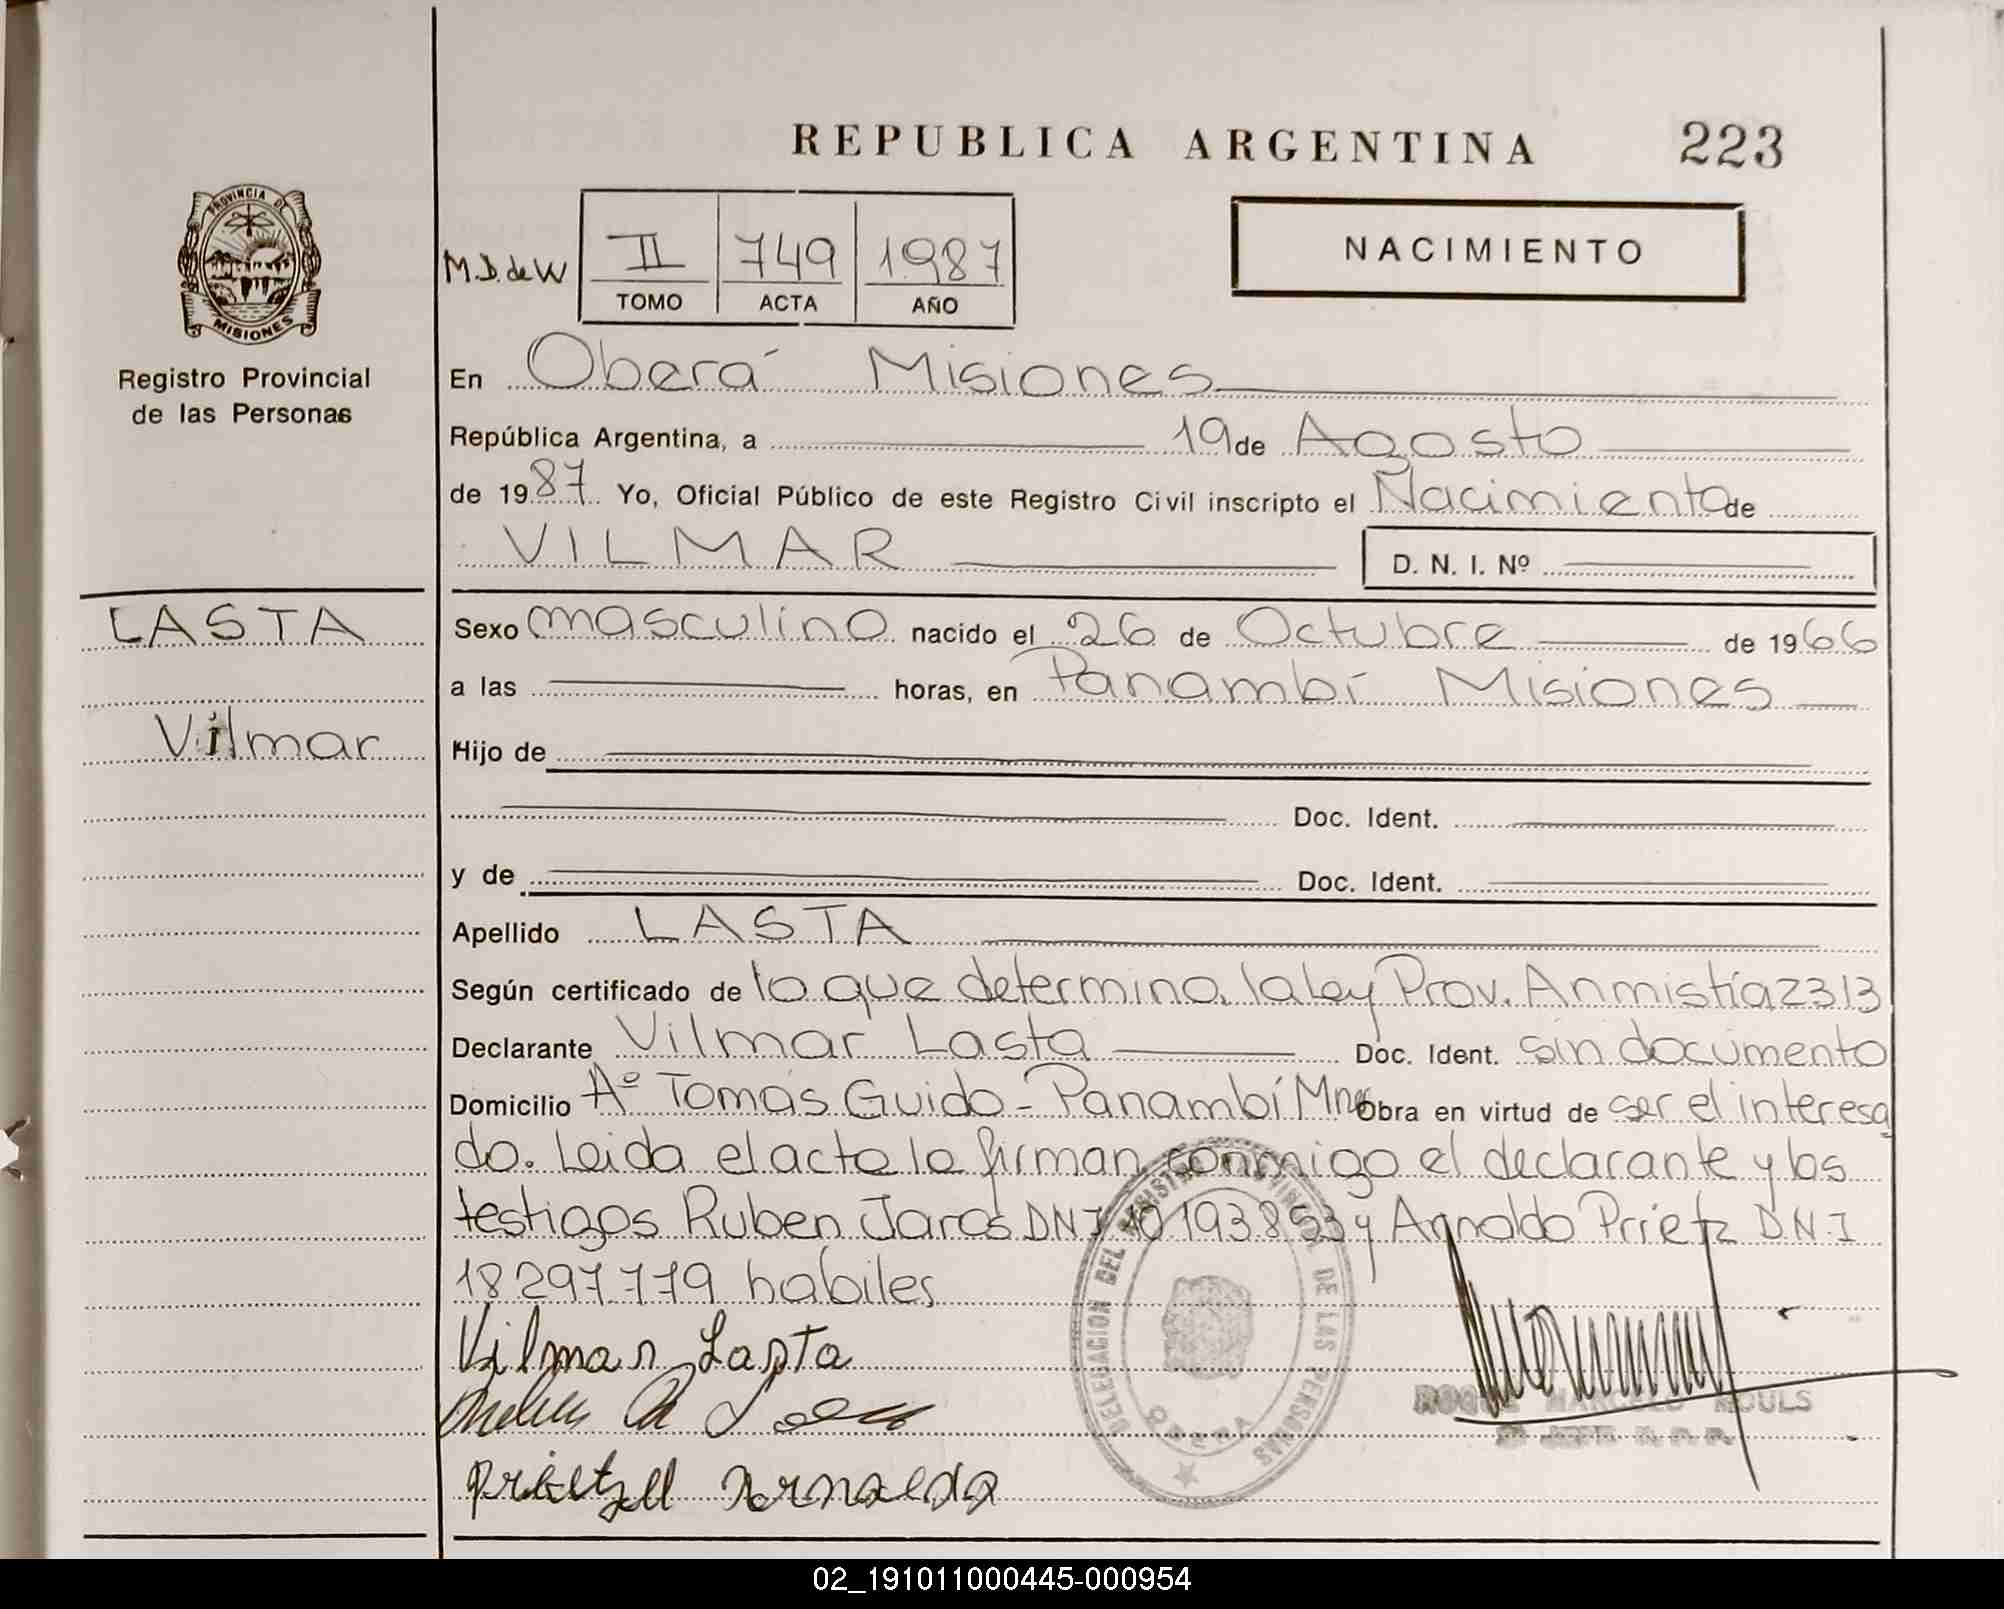 REPUBLICA ARGENTINA 223
PROVINCIA DE
MISIONES
Registro Provincial
de las Personas
M.D. de W
II 749 1987
TOMO ACTA AÑO
NACIMIENTO
En Oberá Misiones
República Argentina, a 19 de Agosto
de 1987 Yo, Oficial Público de este Registro Civil inscripto el Nacimiento de
VILMAR D. N. I. Nº
LASTA
Vilmar
Sexo masculino nacido el 26 de Octubre de 1966
a las horas, en Panambí Misiones
Hijo de
Doc. Ident.
y de Doc. Ident.
Apellido LASTA
Según certificado de lo que determina la Ley Prov. Anmistía 2313
Declarante Vilmar Lasta Doc. Ident. sin documento
Domicilio Aº Tomás Guido - Panambí Mnes Obra en virtud de ser el interesa
do. Leida el acta la firman conmigo el declarante y los
testigos Ruben Jaros DNI 10193853 y Arnoldo Prietz D.N.I
18297779 habiles
Vilmar Lasta
Prietzll Arnaldo
DELEGACION DEL REGISTRO PROVINCIAL DE LAS PERSONAS
OBERA
ROQUE MARCELO MOULS
02_191011000445-000954